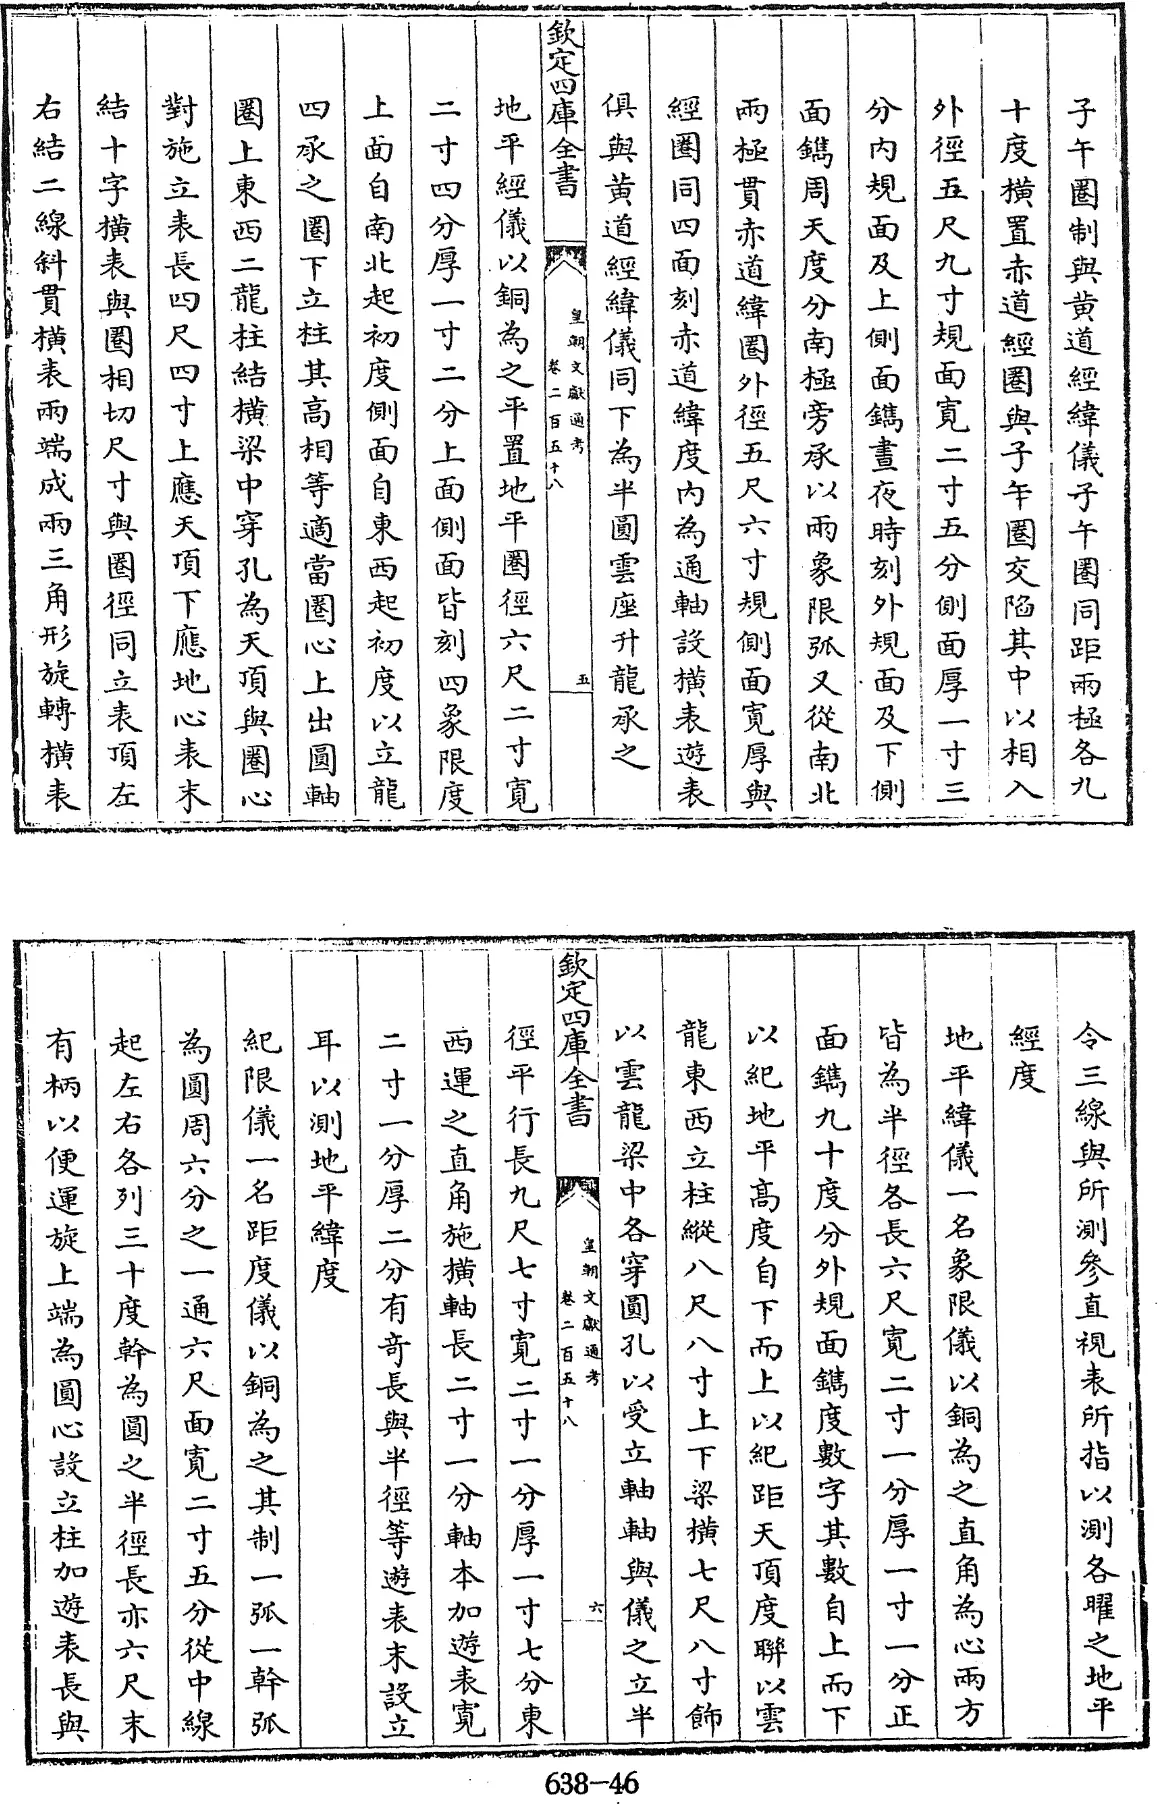 子午圈制與黄道經緯儀子午圈同距兩極各九
十度横置赤道經圈與子午圈交陷其中以相入
外徑五尺九寸規面寛二寸五分側面厚一寸三
分内規面及上側面鐫晝夜時刻外規面及下側
面鐫周天度分南極旁承以兩象限弧又從南北
兩極貫赤道緯圈外徑五尺六寸規側面寛厚與
經圈同四面刻赤道緯度内為通軸設横表遊表
俱與黄道經緯儀同下為半圓雲座升龍承之
欽定四庫全書
皇朝文獻通考
卷二百五十八
五
地平經儀以銅為之平置地平圈徑六尺二寸寛
二寸四分厚一寸二分上面側面皆刻四象限度
上面自南北起初度側面自東西起初度以立龍
四承之圈下立柱其高相等適當圈心上出圓軸
圈上東西二龍柱結横梁中穿孔為天頂與圈心
對施立表長四尺四寸上應天頂下應地心表末
結十字横表與圈相切尺寸與圈徑同立表頂左
右結二線斜貫横表兩端成兩三角形旋轉横表
令三線與所測參直視表所指以測各曜之地平
經度
地平緯儀一名象限儀以銅為之直角為心兩方
皆為半徑各長六尺寛二寸一分厚一寸一分正
面鐫九十度分外規面鐫度數字其數自上而下
以紀地平高度自下而上以紀距天頂度聨以雲
龍東西立柱縱八尺八寸上下梁横七尺八寸飾
以雲龍梁中各穿圓孔以受立軸軸與儀之立半
欽定四庫全書
皇朝文獻通考
卷二百五十八
六
徑平行長九尺七寸寛二寸一分厚一寸七分東
西運之直角施横軸長二寸一分軸本加遊表寛
二寸一分厚二分有奇長與半徑等遊表末設立
耳以測地平緯度
紀限儀一名距度儀以銅為之其制一弧一幹弧
為圓周六分之一通六尺面寛二寸五分從中線
起左右各列三十度幹為圓之半徑長亦六尺末
有柄以便運旋上端為圓心設立柱加遊表長與
638-46